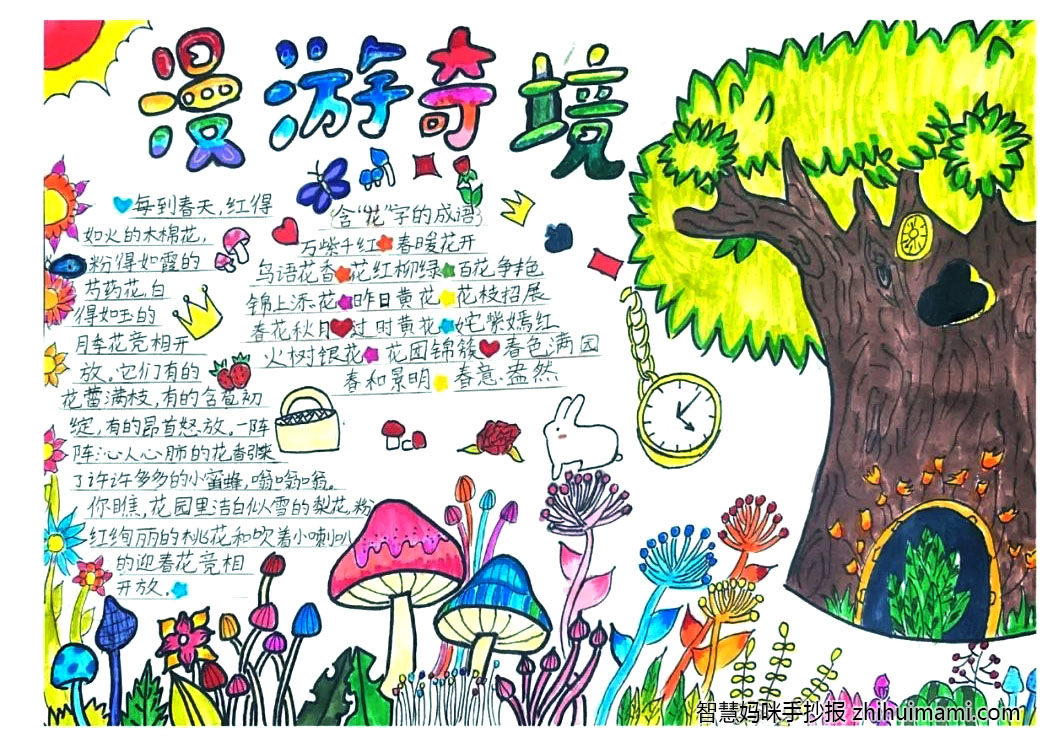 漫游奇境
每到春天，红得
如火的木棉花，
粉得如霞的
芍药花，白
得如玉的
月季花竞相开
放。它们有的
花蕾满枝，有的含苞初
绽，有的昂首怒放。一阵
阵沁人心肺的花香引来
了许许多多的小蜜蜂，嗡嗡嗡。
你瞧，花园里洁白似雪的梨花，粉
红绚丽的桃花和吹着小喇叭
的迎春花竞相
开放。
含“花”字的成语
万紫千红 春暖花开
鸟语花香 花红柳绿 百花争艳
锦上添花 昨日黄花 花枝招展
春花秋月 过时黄花 姹紫嫣红
火树银花 花团锦簇 春色满园
春和景明 春意盎然
智慧妈咪手抄报 zhihuimami.com